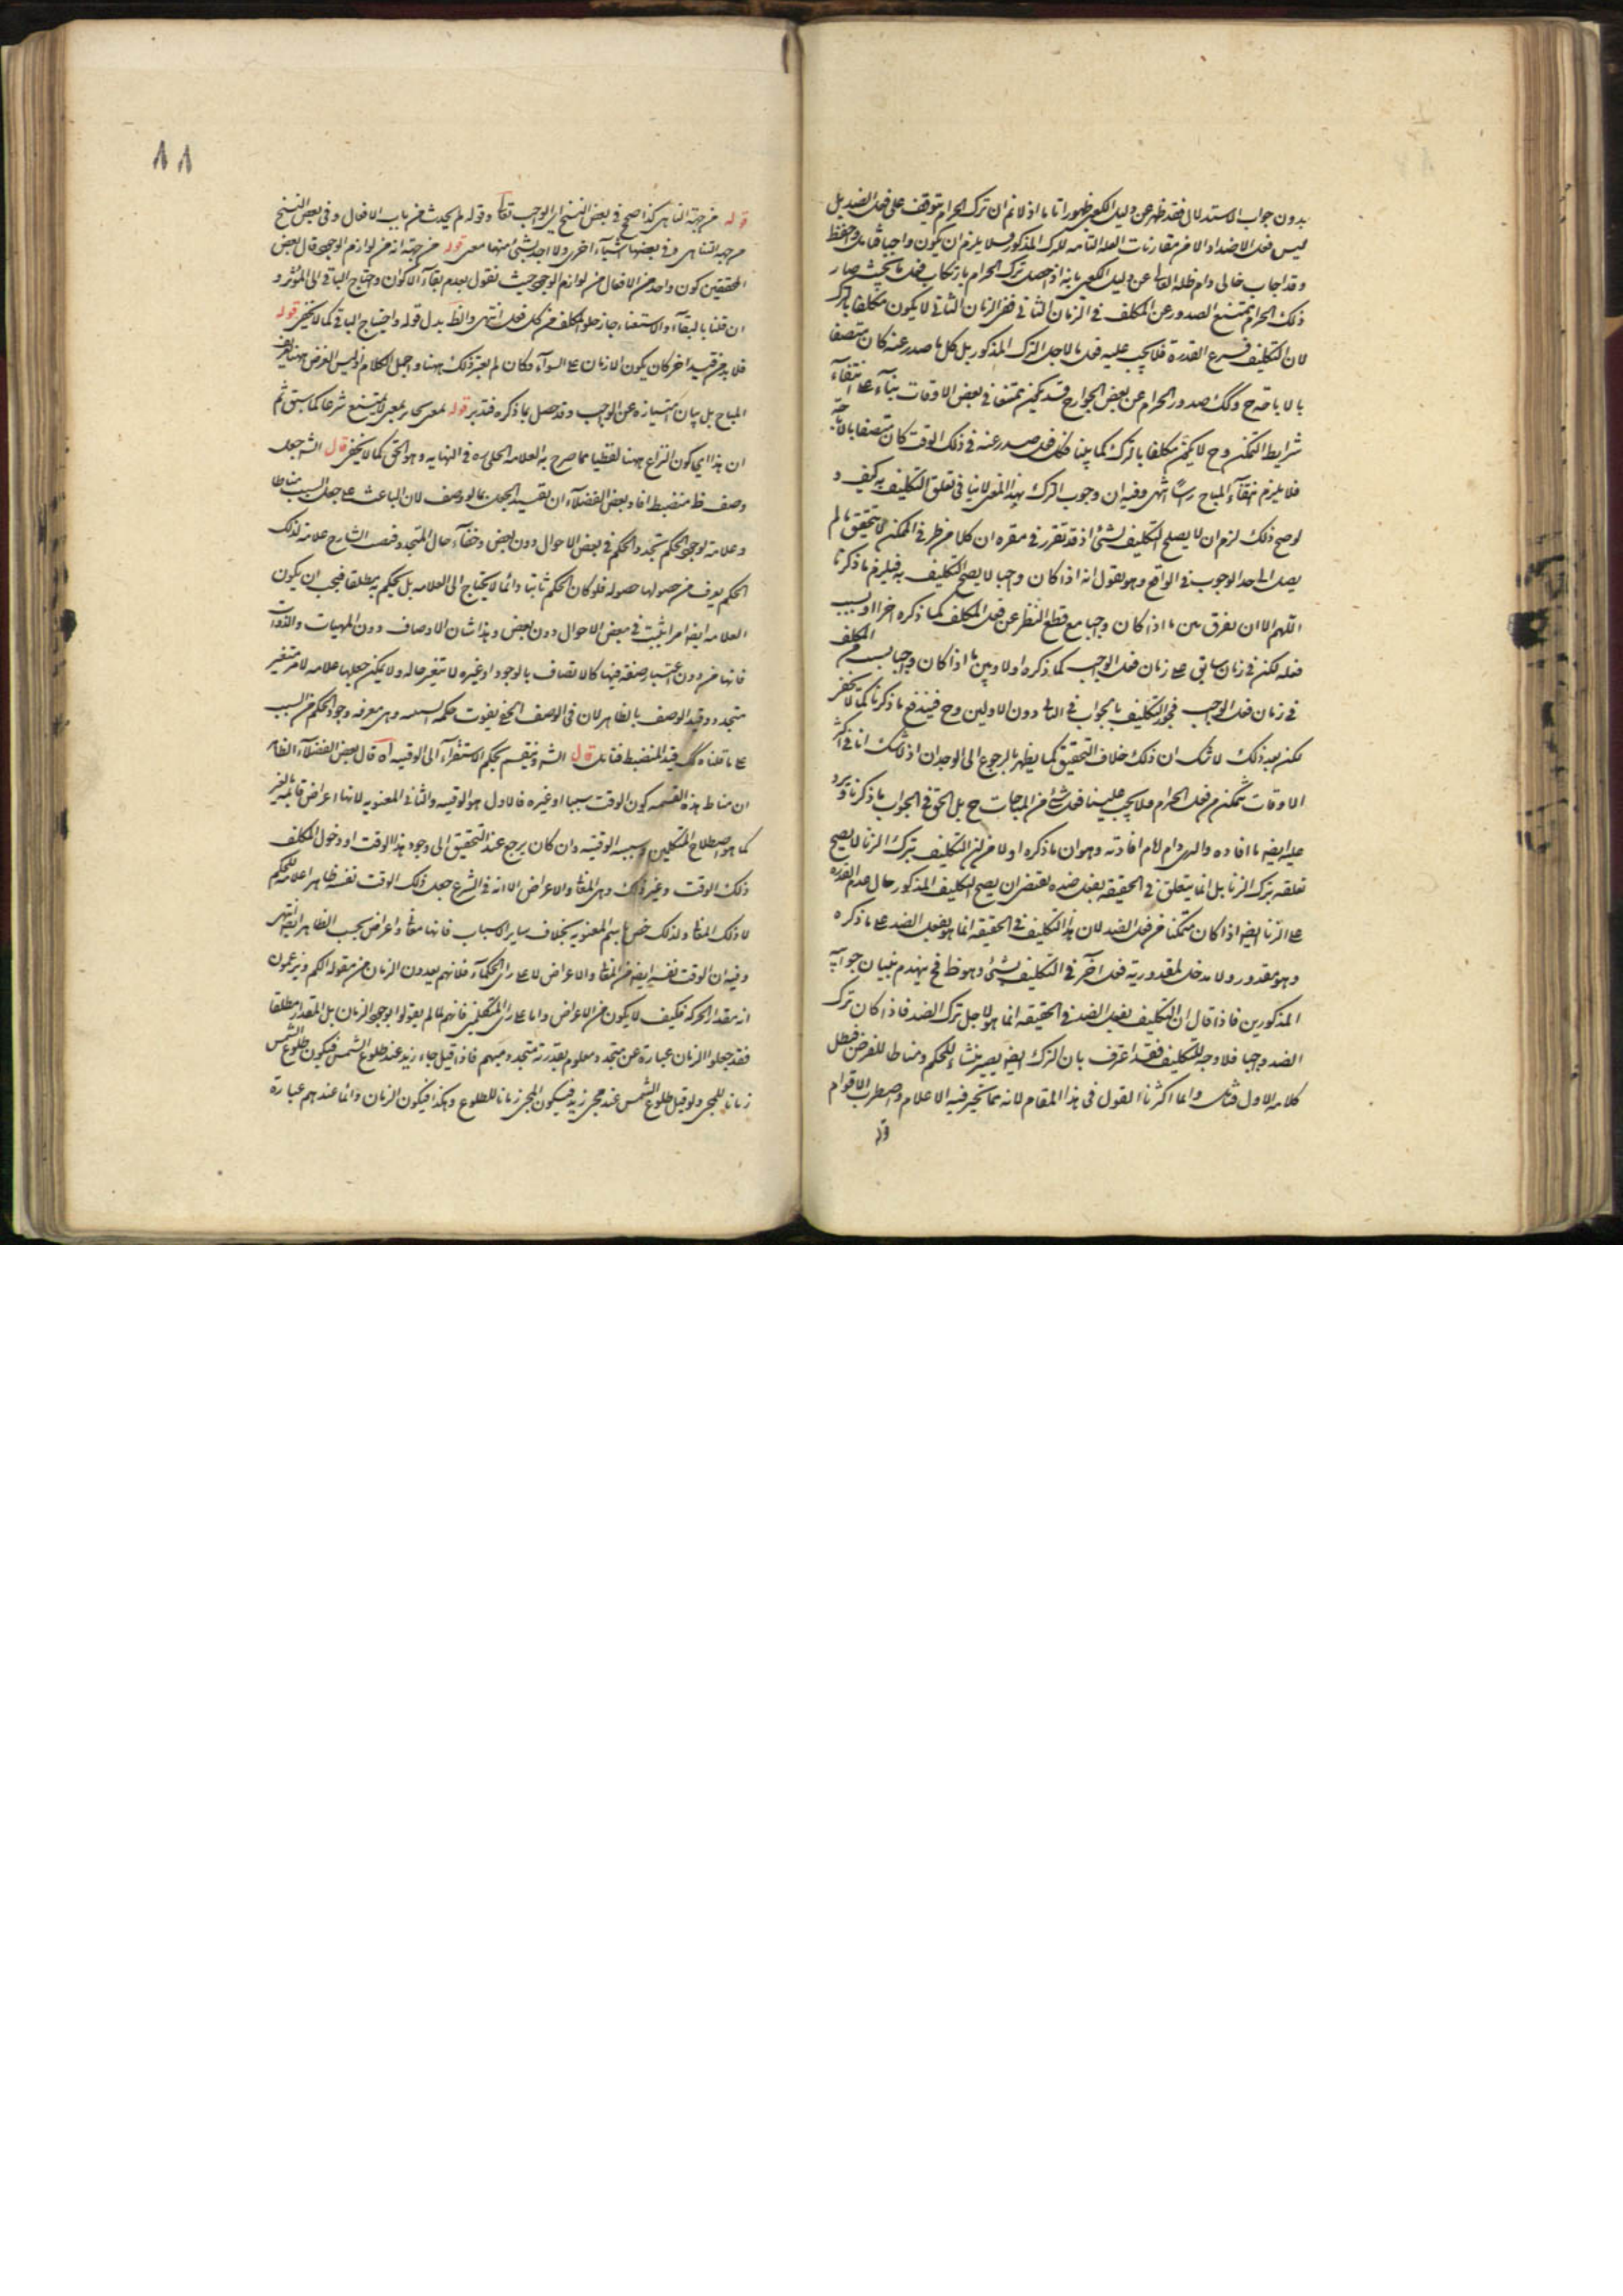 بدون جواب الاستدلال فقد ظهر عن دليل الكعبي ظهورا تاما اذ لا نم ان ترك الحرام يتوقف على فعل الضد بل
ليس فعل الاضداد الا من مقارنات العلة التامه للترك المذكور فلا يلزم ان يكون واجبا
وقد اجاب خالى دام ظله العالى عن دليل الكعبي بانه اذا حصل ترك الحرام بارتكاب فعل ما بحيث صار
ذلك الحرام ممتنع الصدور عن المكلف في الزمان الثاني ففى الزمان الثاني لا يكون مكلفا بالترك
لان التكليف فرع القدرة فلا يجب عليه فعل ما لاجل الترك المذكور بل كل ما صدر عنه كان متصفا
بالاباحة ح وكك صدور الحرام عن بعض الجوارح قد يكون ممتنعا في بعض الاوقات بناء على انتفاء
شرايط التمكن وح لا يكون مكلفا بالترك كما بينا فكل فعل صدر عنه في ذلك الوقت كان متصفا بالاباحة
فلا يلزم انتفاء المباح راسا انتهى وفيه ان وجوب الترك بهذا المعنى لا ينافى تعلق التكليف به كيف و
لو صح ذلك لزم ان لا يصلح التكليف لشئ اذ قد تقرر في مقره ان كلا من طرفى الممكن لا يتحقق ما لم
يصل الى حد الوجوب في الواقع وهو يقول انه اذا كان واجبا لا يصح التكليف به فيلزم ما ذكرنا
اللهم الا ان يفرق بين ما اذا كان واجبا مع قطع النظر عن فعل المكلف كما ذكره اخرا او بسبب
فعله لكن في زمان سابق على زمان فعل الواجب كما ذكره اولا وبين ما اذا كان واجبا بسبب من المكلف
في زمان فعل الواجب فجوز التكليف بالواجب في الثالث دون الاولين وح فيندفع ما ذكرنا كما لا يخفى
لكن بعد ذلك لا شك ان ذلك خلاف التحقيق كما يظهر بالرجوع الى الوجدان اذ لا شك انا في اكثر
الاوقات نتمكن من فعل الحرام فلا يجب علينا فعل شئ من المباحات ح بل الحق في الجواب ما ذكرنا ويرد
عليه ايضا ما افاده والدى دام ايام افادته وهو ان ما ذكره اولا من ان التكليف بترك الزنا لا يصح
تعلقه بترك الزنا بل انما يتعلق في الحقيقة بفعل ضده يقتضى ان يصح التكليف المذكور حال عدم القدرة
على الزنا ايضا اذا كان متمكنا من فعل الضد لان هذا التكليف في الحقيقة انما هو بفعل الضد على ما ذكره
وهو مقدور ولا مدخل لمقدورية فعل آخر في التكليف بشئ وهو ظ فح ينهدم بنيان جوابيه
المذكورين فاذا قال ان التكليف بفعل الضد في الحقيقة انما هو لاجل ترك الضد فاذا كان ترك
الضد واجبا فلا وجه للتكليف فقد اعترف بان الترك ايضا يصير منشاء للحكم ومناطا للغرض فبطل
كلامه الاول فتامل وانما اكثرنا القول في هذا المقام لانه مما تحير فيه الاعلام واضطرب الاقوام
قوله
٨٨
قوله من جهة التناهى كذا صح في بعض النسخ اى الواجب تعا وقوله لم يحدث من باب الافعال وفى بعض النسخ
من جهة التناهى وفى بعضها اشياء اخرى ولا اجد بشئ منها معنى قوله من جهة انه من لوازم الوجود قال بعض
المحققين كون واحد من الافعال من لوازم الوجود حيث نقول بعدم بقاء الاكوان واحتياج الباقى الى المؤثر و
ان قلنا بالبقاء والاستغناء جاز خلو المكلف من كل فعل انتهى والظ بدل قوله واحتياج الباقى كما لا يخفى قوله
فلا بد من قيد اخر كان يكون الازمان على السواء وكان لم يعتبر ذلك ههنا واجمل الكلام اذ ليس الغرض ههنا تعريف
المباح بل بيان امتيازه عن الواجب وقد حصل بما ذكره فتدبر قوله بمعنى جايز بمعنى لا يمتنع شرعا كما سبق ثم
ان هذا اى كون النزاع ههنا لفظيا مما صرح به العلامة الحلى ره في النهايه وهو الحق كما لا يخفى قال الشه جعل
وصف ظ منضبط افاد بعض الفضلاء ان تقييد الجعل بما الوصف لان الباعث على جعل السبب مناطا
وعلامة لوجود الحكم تجدد الحكم في بعض الاحوال دون بعض وخفاء حال المتجدد فنصب الشارح علامة لذلك
الحكم يعرف من حصولها حصوله فلو كان الحكم ثابتا دائما لا يحتاج الى العلامه بل يحكم به مطلقا فيجب ان يكون
العلامه ايضا امرا يثبت في بعض الاحوال دون بعض وهذا شان الاوصاف دون المهيات والذوات
فانها من دون اعتبار صفة فيها كالاتصاف بالوجود او غيره لا يتغير حاله ولا يمكن جعلها علامه لامر متغير
متجدد وقيد الوصف بالظاهر لان في الوصف الخفى يفوت حكمة السببيه وهى معرفه وجود الحكم من السبب
على ما قلناه وكك قيد المنضبط فتامل قال الشه وينقسم بحكم الاستقراء الى الوقتيه اه قال بعض الفضلاء الظاهر
ان مناط هذه القسمه كون الوقت سببا او غيره فالاول هو الوقتيه والثانى المعنويه لانها اعراض قايمه بالغير
كما هو اصطلاح المتكلمين وسببيه الوقتيه وان كان يرجع عند التحقيق الى وجود هذا الوقت او دخول المكلف
ذلك الوقت وغير ذلك وهى المعانى والاعراض الا انه في الشرع جعل ذلك الوقت نفسه ظاهرا علامة للحكم
لا ذلك المعانى ولذلك خص باسم المعنويه بخلاف ساير الاسباب فانها معانى واعراض بحسب الظاهر ايضا انتهى
وفيه ان الوقت نفسه ايضا من المعانى والاعراض اما على راى الحكماء فلانهم يعدون الزمان من مقولة الكم ويزعمون
انه مقدار الحركة فكيف لا يكون من الاعراض واما على راى المتكلمين فانهم لما لم يقولوا بوجود الزمان بل المقدار مطلقا
فقد جعلوا الزمان عبارة عن متجدد معلوم يقدر به متجدد مبهم فاذا قيل جاء زيد عند طلوع الشمس فيكون طلوع الشمس
زمانا للمجى ولو قيل طلوع الشمس عند مجى زيد فيكون المجى زمانا للطلوع وهكذا فيكون الزمان دائما عندهم عبارة